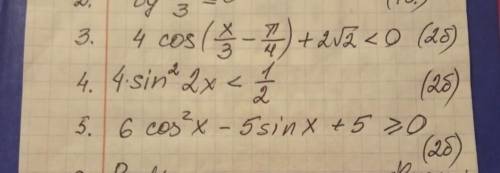 2.
3. 4 cos(x/3 − π/4) + 2√2 < 0 (2б)
4. 4·sin² 2x < 1/2 (2б)
5. 6 cos²x − 5sinx + 5 ≥ 0
(2б)